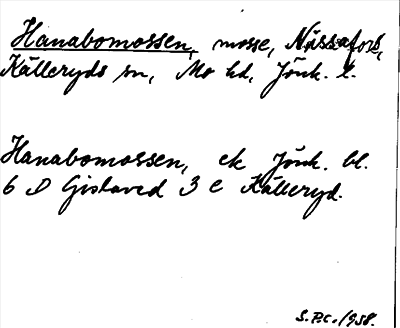 Hanabomossen, mosse, Nässafors,
Källeryds sn, Mo hd, Jönk. l.
Hanabomossen, ek Jönk. bl.
6 D Gislaved 3 e Källeryd.
S.P.C. 1958.